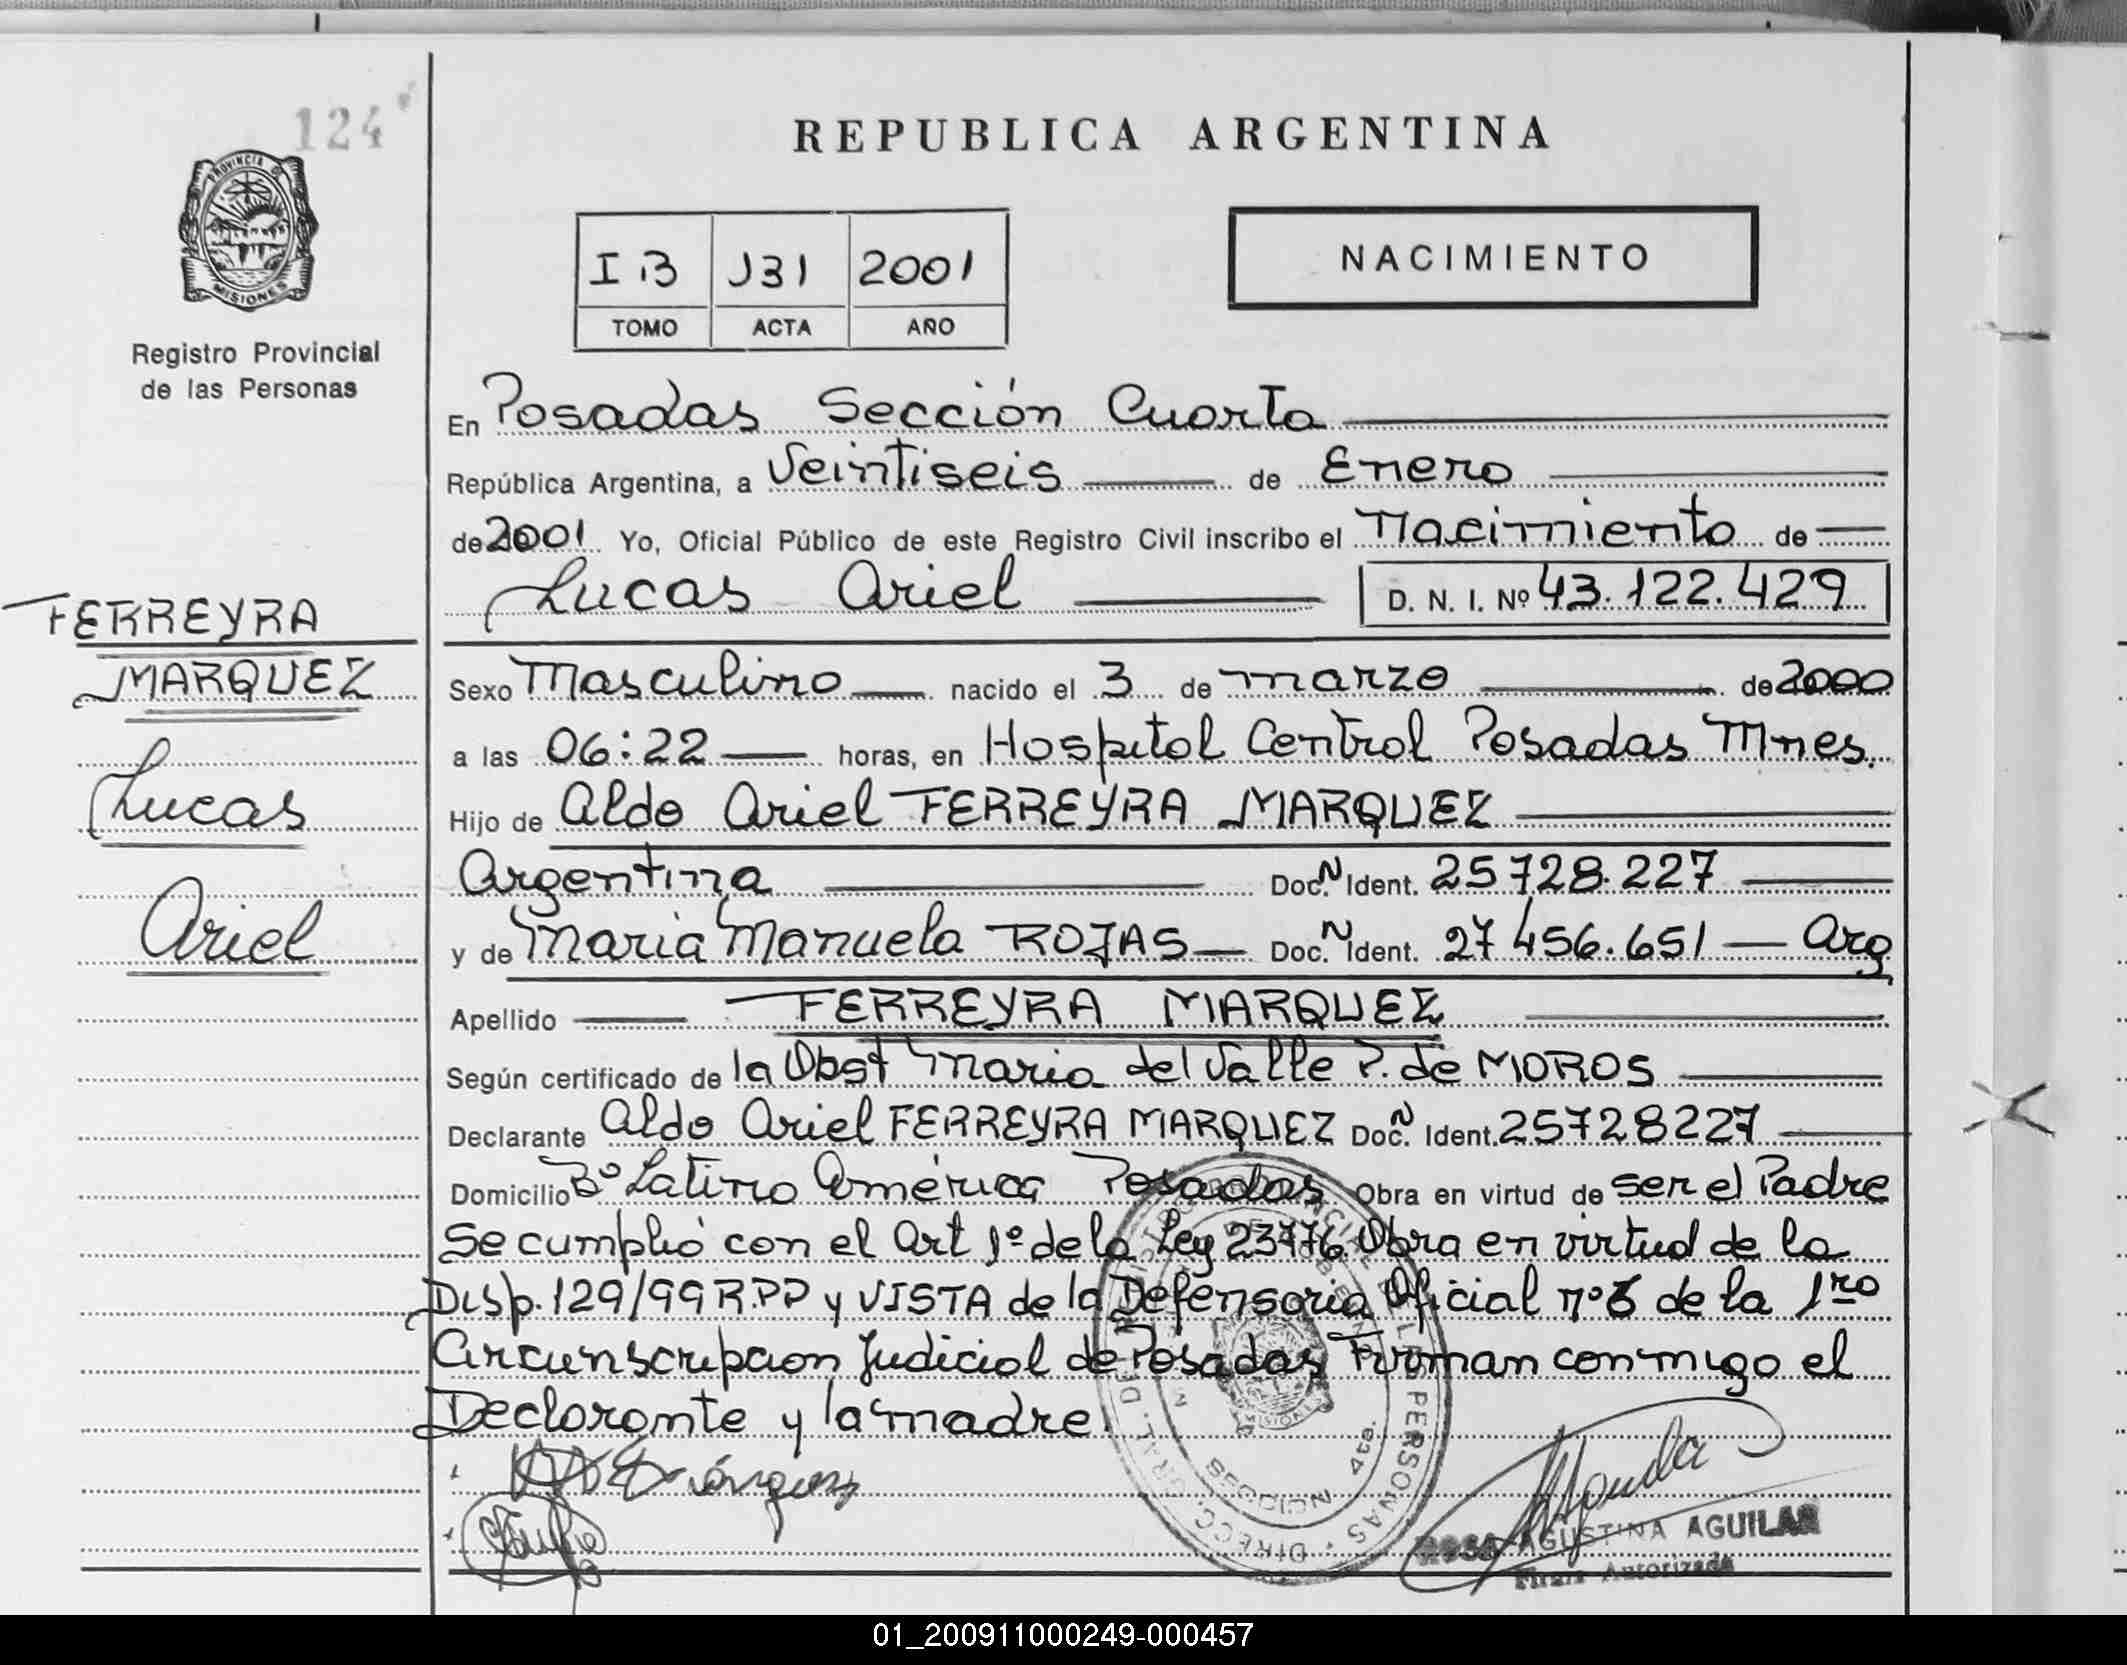 124
REPUBLICA ARGENTINA
PROVINCIA DE
MISIONES
Registro Provincial
de las Personas
I B J31 2001
TOMO ACTA AÑO
NACIMIENTO
En Posadas Sección Cuarta
República Argentina, a Veintiseis de Enero
de 2001 Yo, Oficial Público de este Registro Civil inscribo el Nacimiento de
Lucas Ariel D. N. I. Nº 43.122.429
FERREYRA
MARQUEZ
Lucas
Ariel
Sexo Masculino nacido el 3 de marzo de 2000
a las 06:22 horas, en Hospital Central Posadas Mnes.
Hijo de Aldo Ariel FERREYRA MARQUEZ
Argentina Doc. N Ident. 25728.227
y de Maria Manuela ROJAS Doc. N Ident. 27456.651 Arg
Apellido FERREYRA MARQUEZ
Según certificado de la Obst Maria del Valle P. de MOROS
Declarante Aldo Ariel FERREYRA MARQUEZ Doc. N Ident. 25728227
Domicilio Bº Latino América Posadas Obra en virtud de ser el Padre
Se cumplió con el Art 1º de la Ley 23776 Obra en virtud de la
Disp. 129/99 R.P.P y VISTA de la Defensoria Oficial nº 6 de la 1ra
Circunscripcion Judicial de Posadas Firman conmigo el
Declarante y la madre.
ROSA AGUSTINA AGUILAR
Firma Autorizada
01_200911000249-000457